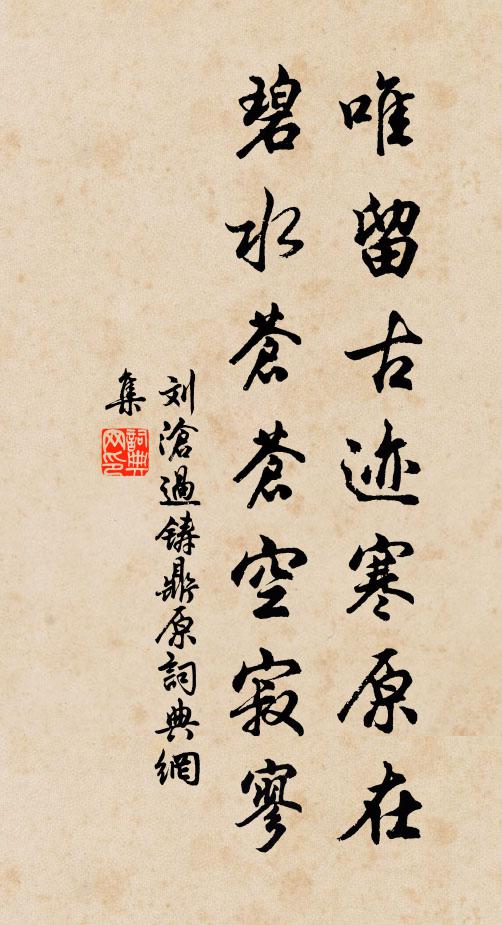 唯留古迹寒原在
碧水蒼蒼空寂寥
刘滄過鑄鼎原詞典網
集
詞典网印